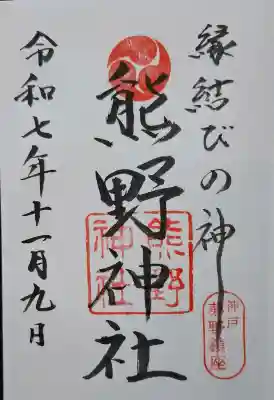 縁結びの神
熊野神社
熊野
神社
神戸
夢野鎮座
令和七年十一月九日